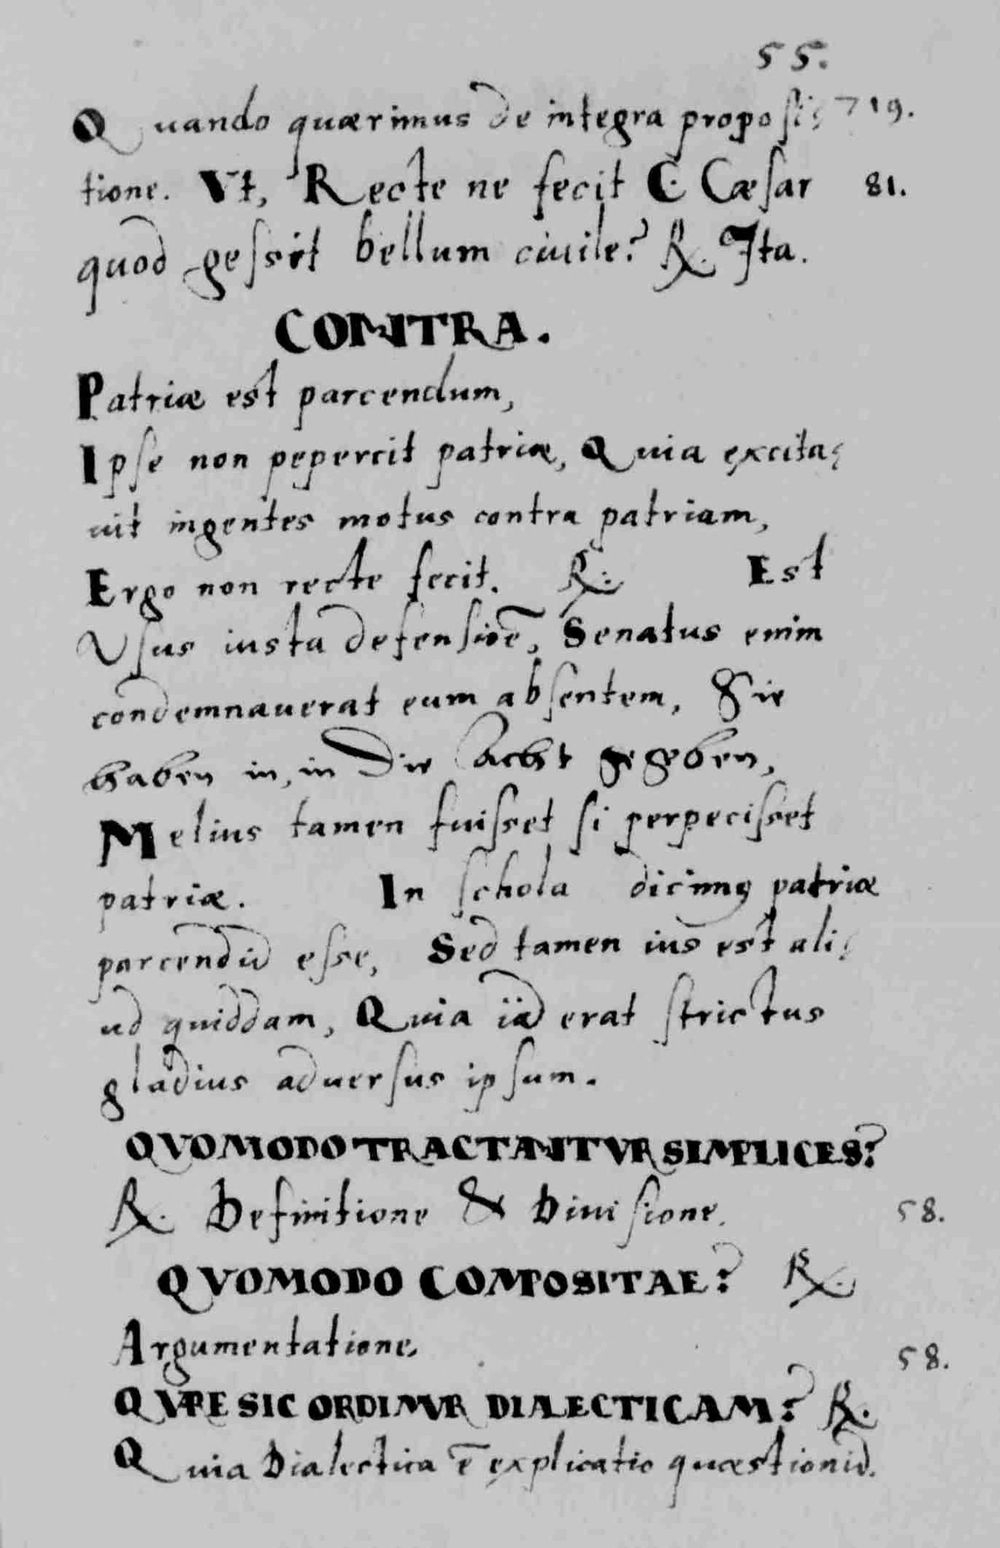 55.
Quando quærimus de integra proposi⸗ 719.
tione. Vt, Recte ne fecit C. Cæsar 81.
quod gessit bellum ciuile? ℞. Ita.
CONTRA.
Patriæ est parcendum,
Ipse non pepercit patriæ, Quia excita⸗
uit ingentes motus contra patriam,
Ergo non recte fecit. ℞. Est
Vsus iusta defensiōe, Senatus enim
condemnauerat eum absentem, Sie
haben in, in die Acht gegeben,
Melius tamen fuisset si perpecisset
patriæ. In schola dicimꝰ patriæ
parcendū esse, Sed tamen ius est ali⸗
ud quiddam, Quia iā erat strictus
gladius aduersus ipsum.
QVOMODO TRACTANTVR SIMPLICES?
℞. Definitione & Diuisione. 58.
QVOMODO COMPOSITAE? ℞.
Argumentatione. 58.
QVARE SIC ORDIMVR DIALECTICAM? ℞.
Quia Dialectica ē explicatio quæstionū.